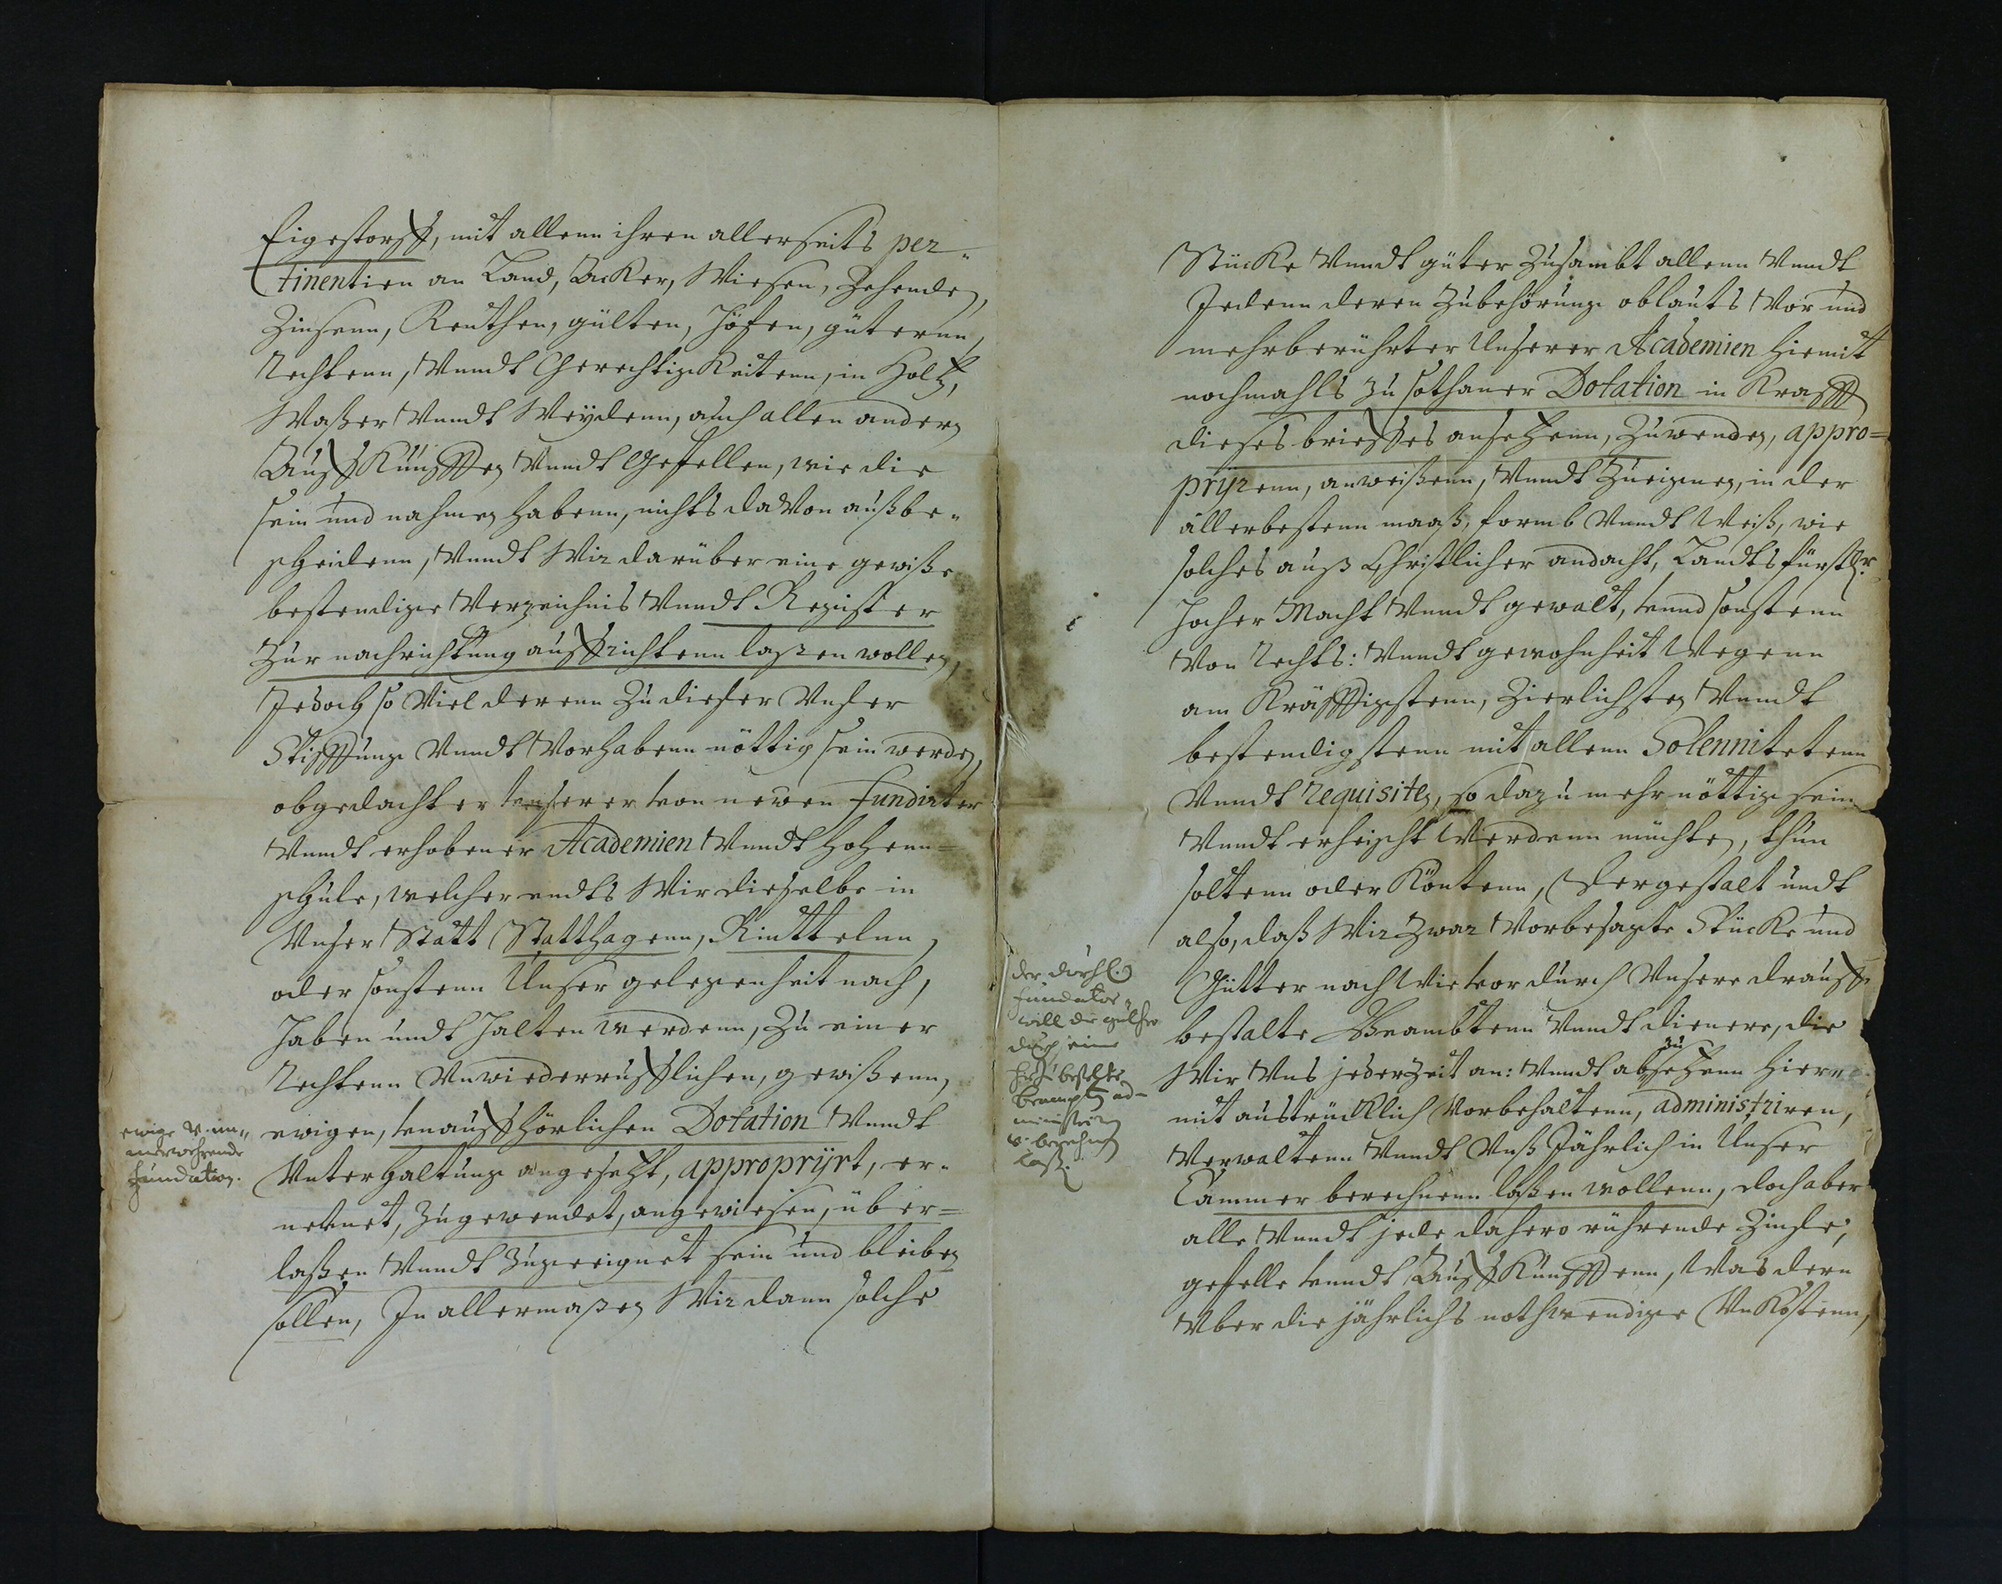 Eigestorff, mit allenn ihren allerseits per-
tinentien an Land, Acker, Wiesen, Zehenden,
Zinsenn, Renthen, gülten, Höfen, güternn,
Rechtenn, Vnndt Gerechtigkeitenn, in Holtz,
Waßer Vnndt Weydenn, auch allen andern
Auffkünfften Vnndt Gefellen, wie die
sein und nahmen habenn, nichts davon außbe-
scheidenn, Vnndt Wir darüber eine gewiße
bestendige Verzeichnis Vnndt Register
Zur nachrichtung auffrichtenn laßen wollen,
Jedoch so Viel derenn Zu dieser Vnser
Stifftung Vnndt Vorhabenn nöttig sein werden,
obgedachter Vnserer von newen fundirter
Vnndt erhobener Academien Vnndt Hohenn-
schule, welcher endts Wir dieselbe in
Vnser Statt Statthagenn, Rinttelnn,
oder sonstenn Unser gelegenheit nach,
Haben undt Halten werdenn, Zu einer
Rechtenn Vnwiederrufflichen, gewißenn,
ewigen, Vnauffhörlichen Dotation Vnndt
Vnterhaltung angesetzt, appropryrt, er-
nennet, Zugewendet, angewiesen, über-
laßen Vnndt Zugeeignet sein und bleiben
sollen, In allermaßen Wir dann solche
ewige V. im-
merwehrende
fundation.
Stücke Vnndt güter Zusambt allenn Vnndt
Jedenn deren Zubehörung oblauts Vor und
mehrberührter Unserer Academien hiemit
nochmahls Zu sothaner Dotation in Krafft
dieses brieffes ansetzenn, Zuwenden, appro-
pryrenn, anweißenn, Vnndt Zueignen, in der
allerbestenn maaß, formb Vnndt Weiß, wie
solches auß Christlicher andacht, Landtsfürstl.r
Hoher Macht Vnndt gewalt, Vnnd sonstenn
Von Rechts: Vnndt gewohnheit Wegenn
am Kräfftigstenn, Zierlichsten Vnndt
bestendigstenn mit allenn Solennitetenn
Vnndt requisiten, so dazu mehr nöttig sein
Vnndt erheischt Werdenn möchten, thun
soltenn oder Köntenn, Dergestalt undt
also, daß Wir Zwar Vorbesagte Stücke und
Gütter nach Wie Vor durch Vnsere drauff
bestalte Beambtenn Vnndt dienere, die
zu
Wir Vns jederzeit an: Vnndt absetzenn hier-
mit austrücklich Vorbehaltenn, administriren,
Verwaltenn Vnndt Vnß Jährlich in Unser
Cammer berechnenn laßen wollenn, doch aber
alle Vnndt jede dahero rührende Zinse,
gefelle Vnndt Auffkünfftenn, Was denn
Vber die jährlichs nothwendige Vnkostenn,
der durchl.
fundator
will die gütter
durch eine
bestelte
beampten ad-
ministriren
v. berechnen
laß.